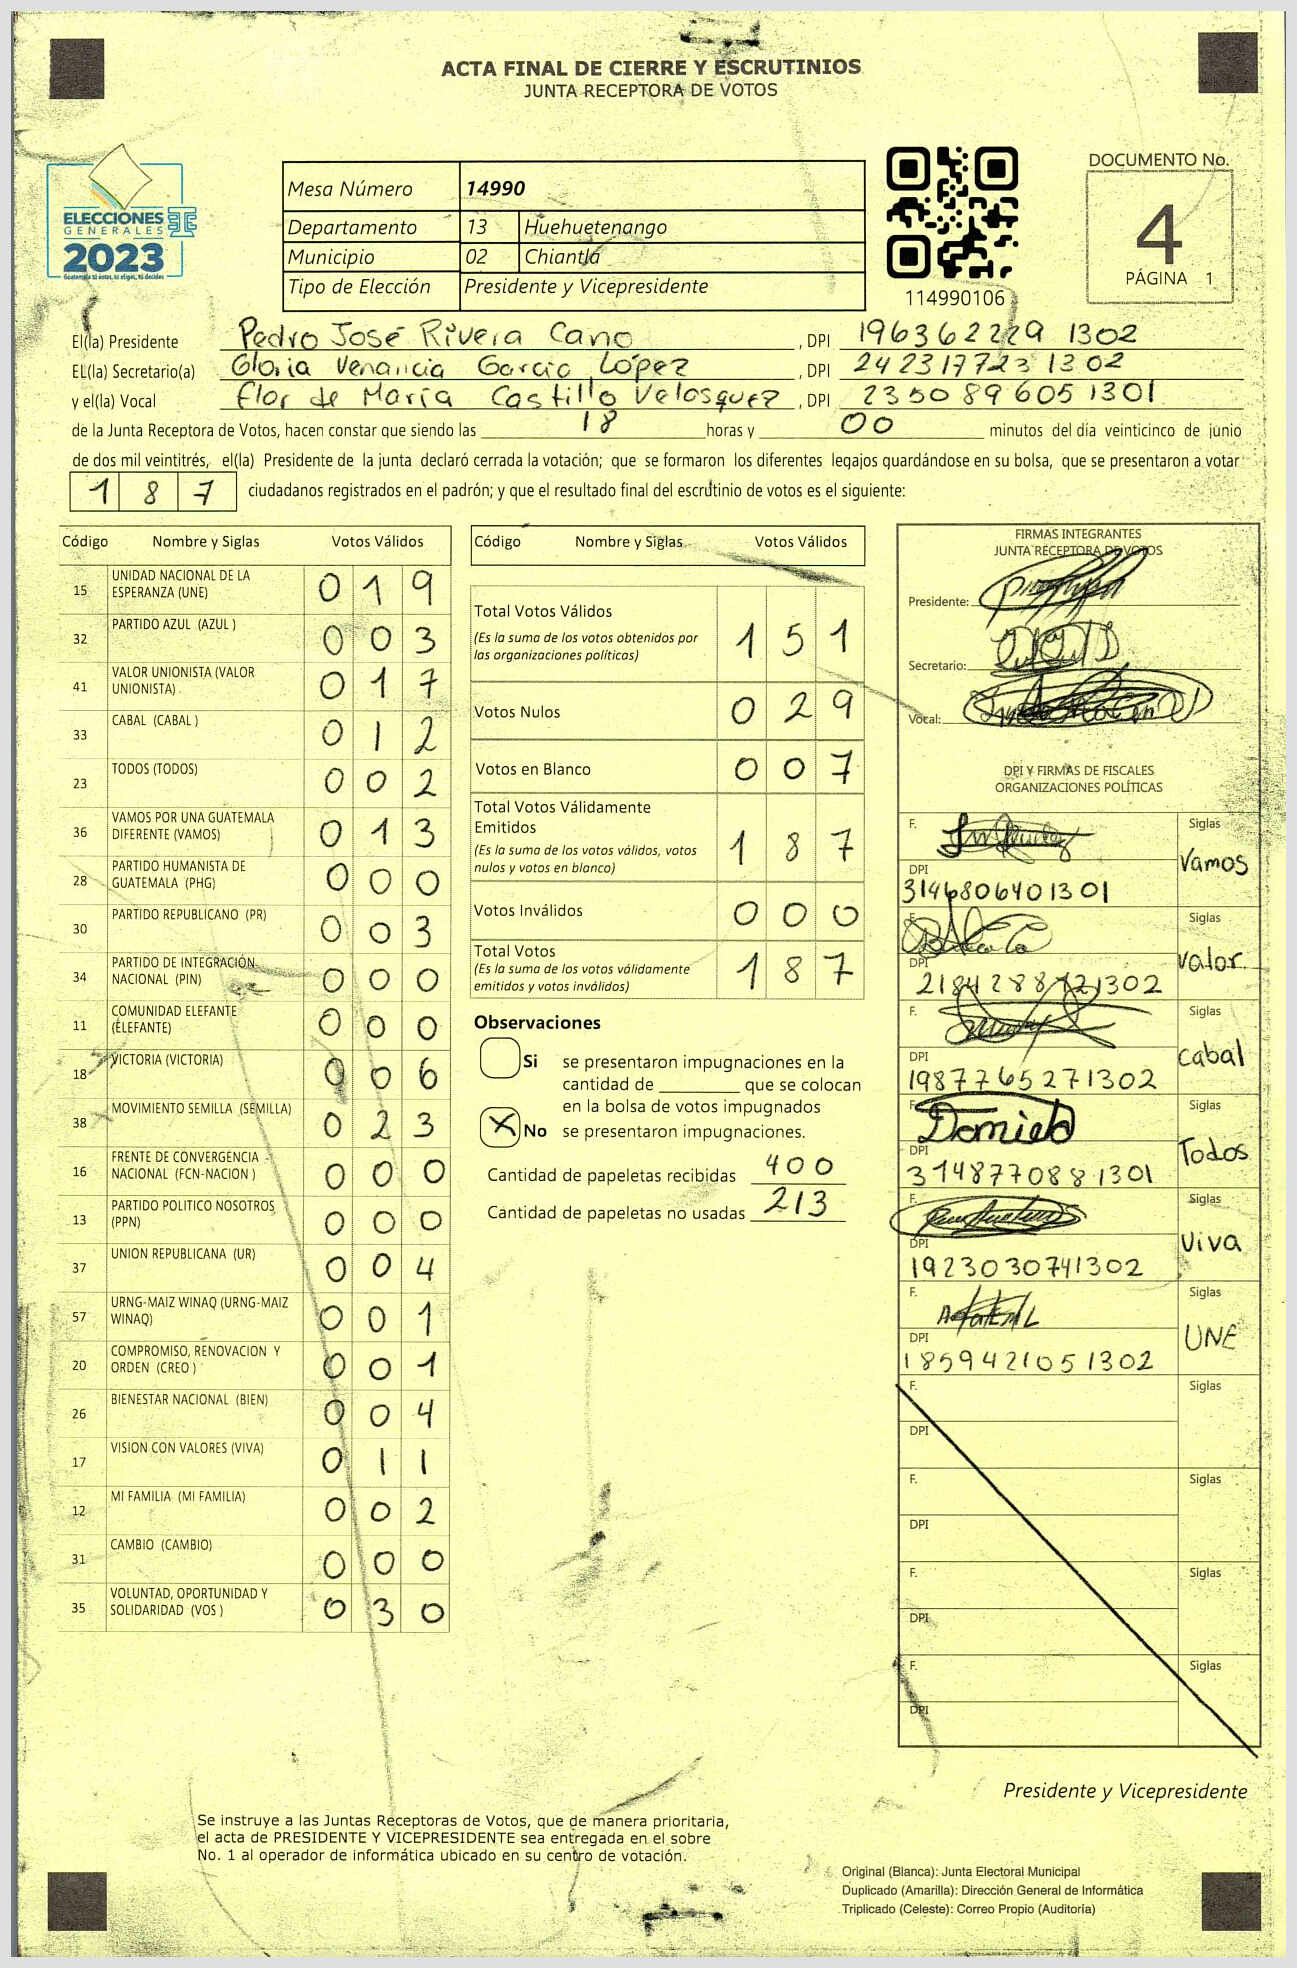 ACTA FINAL DE CIERRE Y ESCRUTINIOS
JUNTA RECEPTORA DE VOTOS
ELECCIONES
GENERALES
2023
Guatemala tú votas, tú eliges, tú decides
Mesa Número 14990
Departamento 13 Huehuetenango
Municipio 02 Chiantla
Tipo de Elección Presidente y Vicepresidente
114990106
DOCUMENTO No.
4
PÁGINA 1
El(la) Presidente Pedro José Rivera Cano, DPI 196362229 1302
EL(la) Secretario(a) Gloria Venancia Garcia López, DPI 242317723 1302
y el(la) Vocal Flor de María Castillo Velasquez, DPI 2350896051301
de la Junta Receptora de Votos, hacen constar que siendo las 18 horas y 00 minutos del día veinticinco de junio
de dos mil veintitrés, el(la) Presidente de la junta declaró cerrada la votación; que se formaron los diferentes legajos guardándose en su bolsa, que se presentaron a votar
187 ciudadanos registrados en el padrón; y que el resultado final del escrutinio de votos es el siguiente:
Código Nombre y Siglas Votos Válidos
15 UNIDAD NACIONAL DE LA ESPERANZA (UNE) 019
32 PARTIDO AZUL (AZUL ) 003
41 VALOR UNIONISTA (VALOR UNIONISTA) 017
33 CABAL (CABAL ) 012
23 TODOS (TODOS) 002
36 VAMOS POR UNA GUATEMALA DIFERENTE (VAMOS) 013
28 PARTIDO HUMANISTA DE GUATEMALA (PHG) 000
30 PARTIDO REPUBLICANO (PR) 003
34 PARTIDO DE INTEGRACIÓN NACIONAL (PIN) 000
11 COMUNIDAD ELEFANTE (ELEFANTE) 000
18 VICTORIA (VICTORIA) 006
38 MOVIMIENTO SEMILLA (SEMILLA) 023
16 FRENTE DE CONVERGENCIA NACIONAL (FCN-NACION ) 000
13 PARTIDO POLITICO NOSOTROS (PPN) 000
37 UNION REPUBLICANA (UR) 004
57 URNG-MAIZ WINAQ (URNG-MAIZ WINAQ) 001
20 COMPROMISO, RENOVACION Y ORDEN (CREO ) 001
26 BIENESTAR NACIONAL (BIEN) 004
17 VISION CON VALORES (VIVA) 011
12 MI FAMILIA (MI FAMILIA) 002
31 CAMBIO (CAMBIO) 000
35 VOLUNTAD, OPORTUNIDAD Y SOLIDARIDAD (VOS ) 030
Código Nombre y Siglas Votos Válidos
Total Votos Válidos 151
(Es la suma de los votos obtenidos por
las organizaciones políticas)
Votos Nulos 029
Votos en Blanco 007
Total Votos Válidamente
Emitidos 187
(Es la suma de los votos válidos, votos
nulos y votos en blanco)
Votos Inválidos 000
Total Votos 187
(Es la suma de los votos válidamente
emitidos y votos inválidos)
Observaciones
Si se presentaron impugnaciones en la
cantidad de ________ que se colocan
en la bolsa de votos impugnados
X No se presentaron impugnaciones.
Cantidad de papeletas recibidas 400
Cantidad de papeletas no usadas 213
FIRMAS INTEGRANTES
JUNTA RECEPTORA DE VOTOS
Presidente:
Secretario:
Vocal:
DPI Y FIRMAS DE FISCALES
ORGANIZACIONES POLÍTICAS
F. Siglas Vamos
DPI 3146806401301
F. Siglas Valor
DPI 2184288721302
F. Siglas cabal
DPI 1987765271302
F. Siglas Todos
DPI 3148770881301
F. Siglas Viva
DPI 1923030741302
F. Siglas UNE
DPI 1859421051302
F. Siglas
DPI
F. Siglas
DPI
F. Siglas
DPI
F. Siglas
DPI
Presidente y Vicepresidente
Se instruye a las Juntas Receptoras de Votos, que de manera prioritaria,
el acta de PRESIDENTE Y VICEPRESIDENTE sea entregada en el sobre
No. 1 al operador de informática ubicado en su centro de votación.
Original (Blanca): Junta Electoral Municipal
Duplicado (Amarilla): Dirección General de Informática
Triplicado (Celeste): Correo Propio (Auditoría)